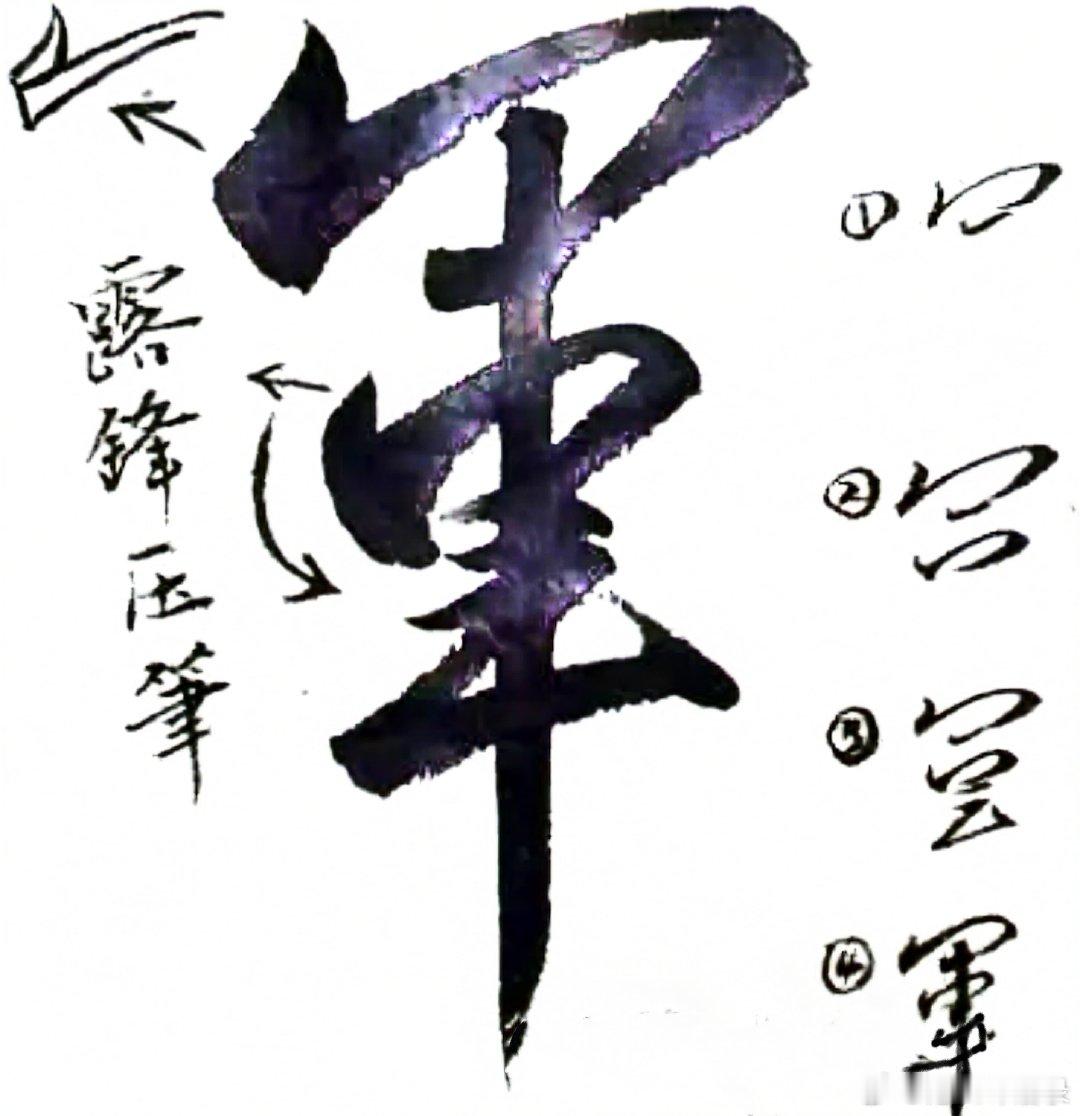 軍
露鋒压筆
①
②
③
④ 軍